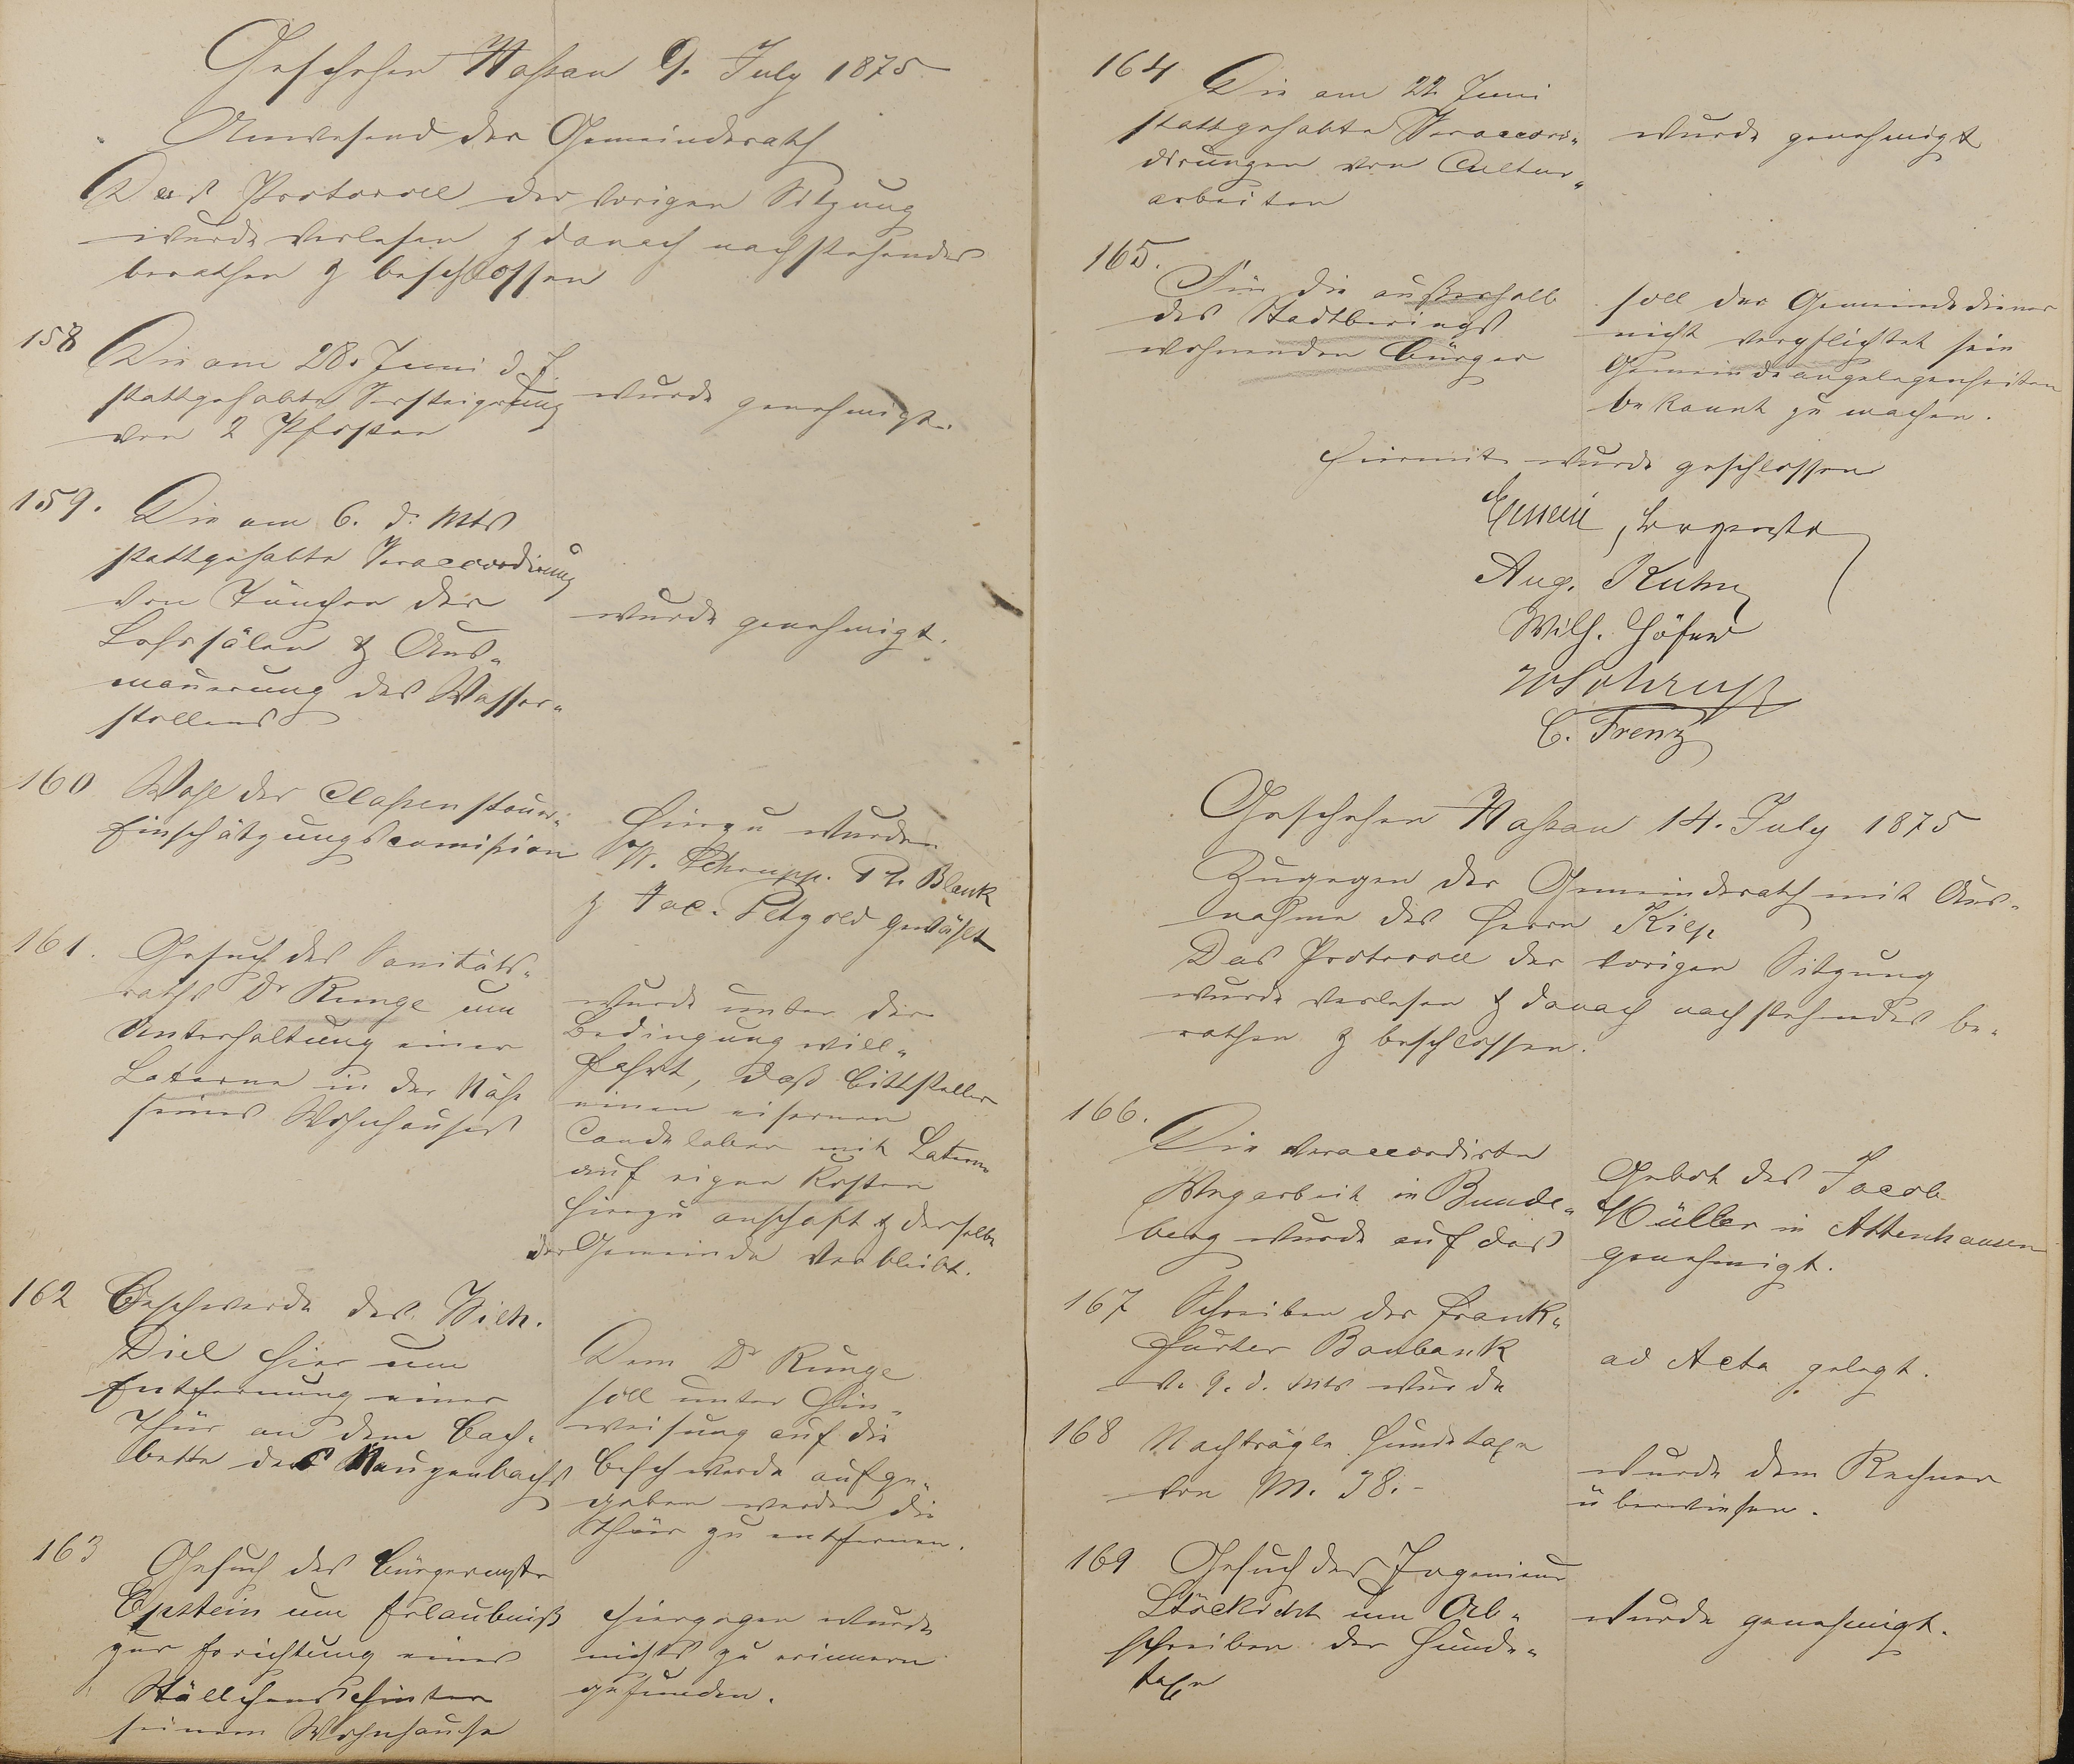 Geschehen Naßau 9. July 1875
Anwesend der Gemeinderath
Das Protocoll der vorigen Sitzung
wurde verlesen & danach nachstehendes
berathen & beschlossen
158 Die am 28. Juni d. J.
stattgehabte Versteigerung
von 2 Pfosten
wurde genehmigt.
159. Die am 6. d. Mts
stattgehabte Veraccordirung
von Tünchen der
Lehrsälen & Aus„
mauerung des Wasser„
stollens
wurde genehmigt.
160 Wahl der Classensteuer„
Einschätzungscomission
Hierzu wurden
W. Schrupp. Ph. Blank
& Jac. Petzold gewählt
161. Gesuch des Sanitäts„
raths Dr Runge um
Unterhaltung einer
Laterne in der Nähe
seines Wohnhauses
wurde unter der
Bedingung will„
fahrt, daß Bittsteller
einen eisernen
Candelaber mit Laterne
auf eigne Kosten
hierzu anschaft & derselbe
der Gemeinde verbleibt.
162 Beschwerde des Wilh.
Diel hier um
Entfernung einer
Thür an dem Bach„
bette des Kaugenbachs
Dem Dr Runge
soll unter Hin„
weisung auf die
Beschwerde aufge„
geben werden die
Thür zu entfernen.
163 Gesuch des Bürgermstr
Epstein um Erlaubniß
zur Errichtung eines
Ställchens hinter
seinem Wohnhause
Hiergegen wurde
nichts zu erinnern
gefunden.
164 Die am 22 Juni
stattgehabte Veraccor„
dirungen von Cultur„
arbeiten
wurde genehmigt
165. Für die außerhalb
des Stadtberings
wohnenden Bürger
soll der Gemeindediener
nicht verpflichtet sein
Gemeindeangelegenheiten
bekannt zu machen.
Hiermit wurde geschlossen
Aug. Kuhn
Wilh. Höfer
C. Frenz
Geschehen Naßau 14. July 1875
Zugegen der Gemeinderath mit Aus„
nahme des Herrn Kilp
Das Protocoll der vorigen Sitzung
wurde verlesen & danach nachstehendes be„
rathen & beschlossen.
166. Die veraccordirte
Wegarbeit in Bunde„
berg wurde auf das
Gebot des Jacob
Müller in Attenhausen
genehmigt.
167 Schreiben der Frank„
furter Baubank
v. 9. d. Mts wurde
ad Acta gelegt.
168 Nachträgle Hundetaxe
von M. 38.-
wurde dem Rechner
überwiesen.
169 Gesuch des Ingenieur
Stöckicht um Ab„
schreiben der Hunde„
taxe
wurde genehmigt.